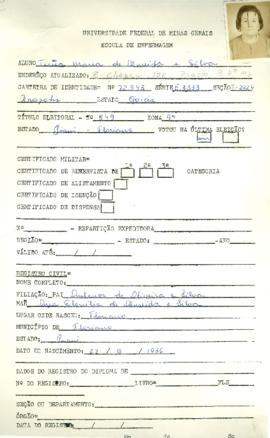 UNIVERSIDADE FEDERAL DE MINAS GERAIS
ESCOLA DE ENFERMAGEM
ALUNO Maria de Almeida e Silva
ENDEREÇO ATUALIZADO:
CARTEIRA DE IDENTIDADE= Nº SÉRIE SEÇÃO
Anápolis ESTADO Goiás
TÍTULO ELEITORAL - Nº 849 ZONA 9ª
ESTADO Piauí - Floriano VOTOU NA ÚLTIMA ELEIÇÃO?
CERTIFICADO MILITAR= 1ª 2ª 3ª
CERTIFICADO DE RESERVISTA DE CATEGORIA
CERTIFICADO DE ALISTAMENTO
CERTIFICADO DE ISENÇÃO
CERTIFICADO DE DISPENSA
Nº - REPARTIÇÃO EXPEDIDORA
REGIÃO= - ESTADO: -ANO
VÁLIDO ATÉ / /
REGISTRO CIVIL=
NOME COMPLETO:
FILIAÇÃO: PAI de Oliveira e Silva
MÃE de Almeida e Silva
LUGAR ONDE NASCEU: Floriano
MUNICÍPIO DE Floriano
ESTADO: Piauí
DATA DO NASCIMENTO: / / 1936
DADOS DO REGISTRO DO DIPLOMA DE
Nº DO REGISTRO: LIVRO= FLS
SEÇÃO OU DEPARTAMENTO:
ÓRGÃO=
DATA DO REGISTRO / /